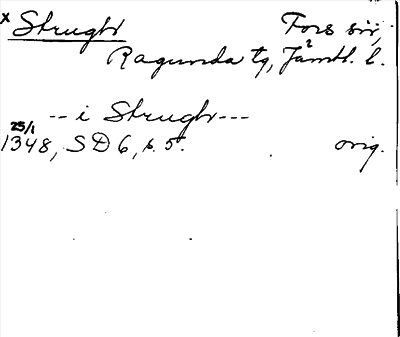 x Strughr Fors sn,
Ragunda tg, Jämtl. l.
2
-- i Strughr ---
25/1
1348, SD 6, s. 5. orig.